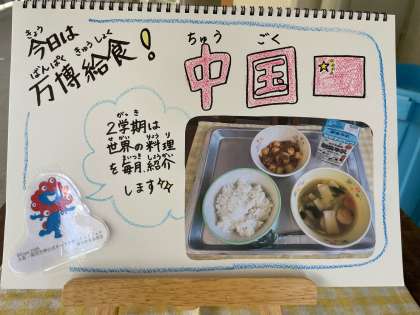 きょう
今日は
ばんぱくきゅうしょく
万博給食！
ちゅうごく
中国
がっき
2学期は
せかいりょうり
世界の料理
まいつきしょうかい
を毎月紹介
します